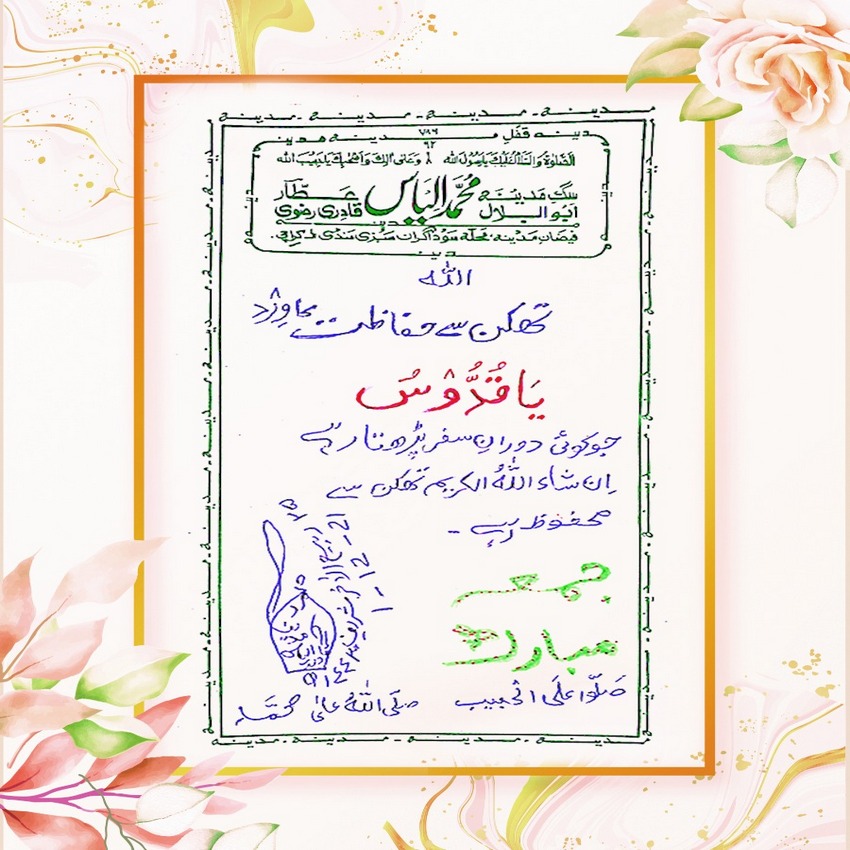 مدینہ - مدینہ - مدینہ - مدینہ
مدینہ قفل مدینہ مدینہ
۷۸۶
۹۲
الصلوٰۃ والسلام علیک یا رسول اللہ وعلیٰ اٰلک واصحٰبک یا حبیب اللہ
سگِ مدینہ محمد الیاس عطار
ابوالبلال قادری رضوی
فیضانِ مدینہ، محلہ سوداگران سبزی منڈی کراچی
اللہ
تھکن سے حفاظت کا وِرْد
یَا قُدُّوْسُ
جو کوئی دورانِ سفر پڑھتا رہے
اِن شاءَ اللہُ الکریم تھکن سے
محفوظ رہے -
جمعہ
مبارک
صَلُّوا عَلَی الْحَبِیب صَلَّی اللہُ عَلٰی مُحَمَّد